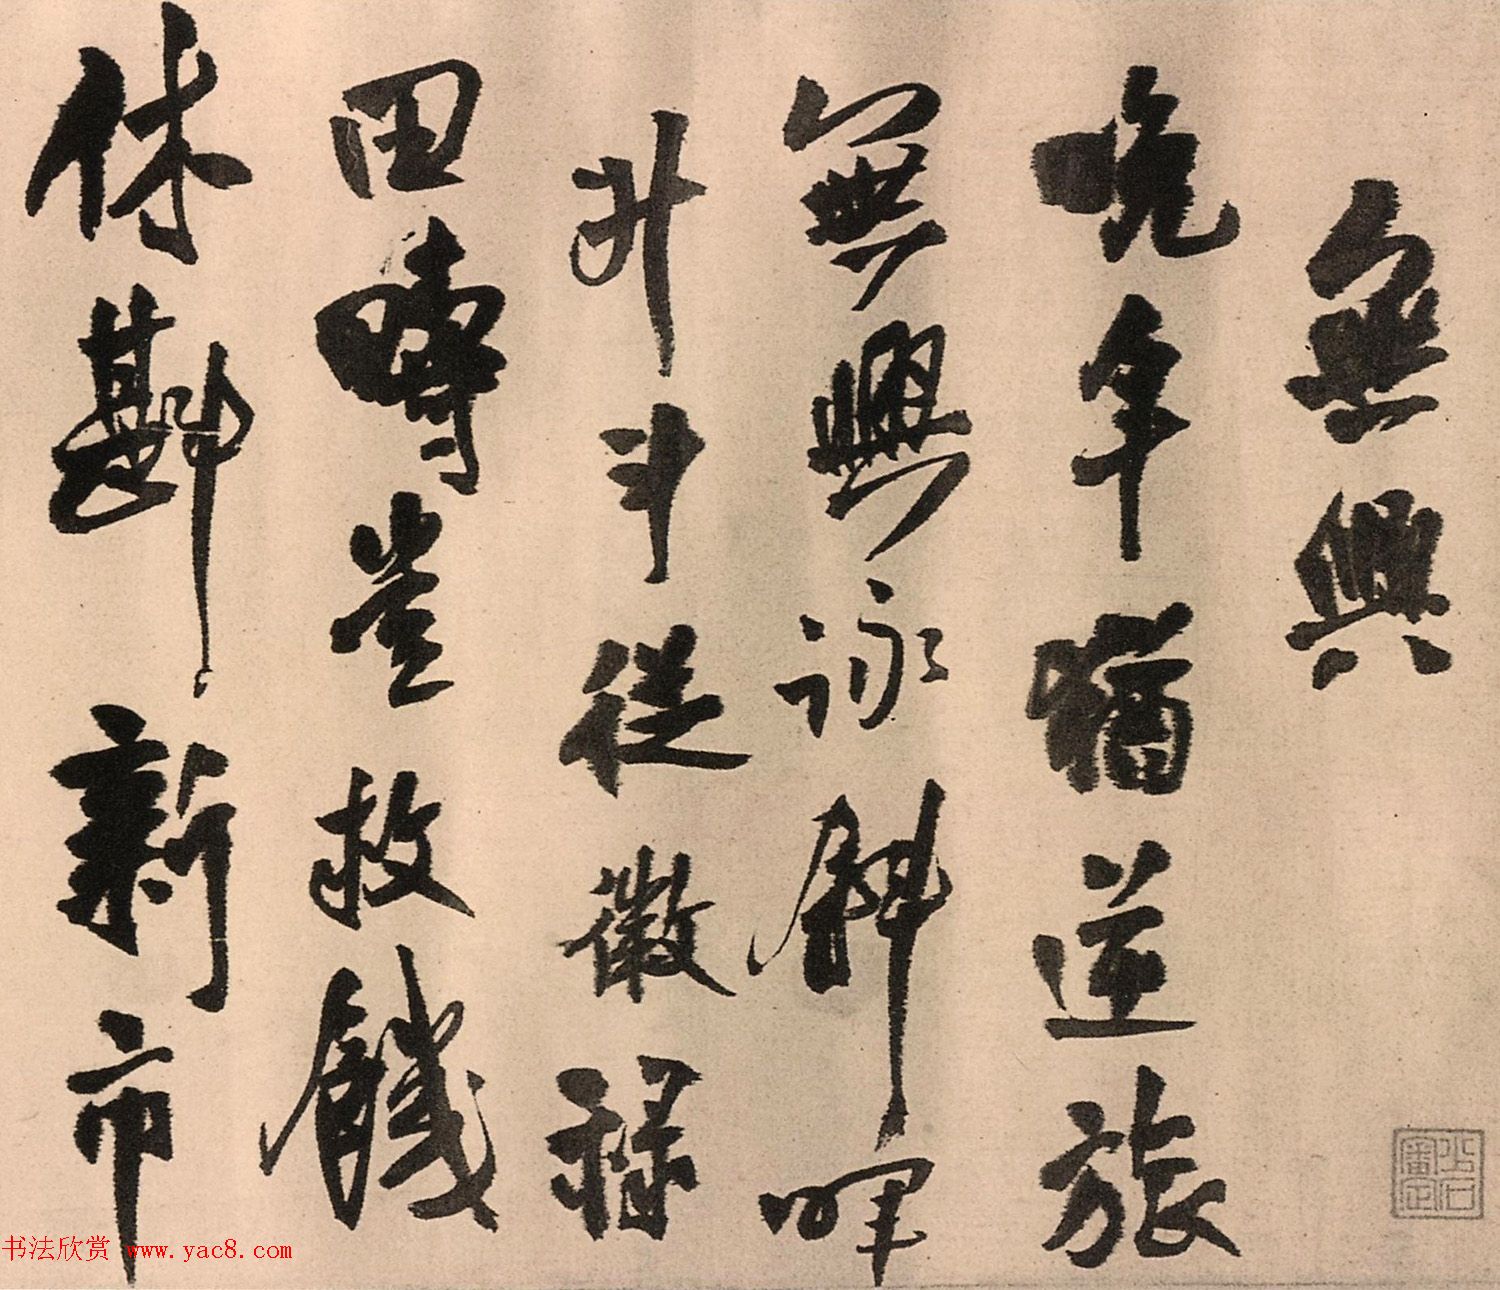 無興
晚年猶逆旅
無興詠斜暉
升斗從微祿
田疇豈救饑
休斟新市
书法欣赏 www.yac8.com